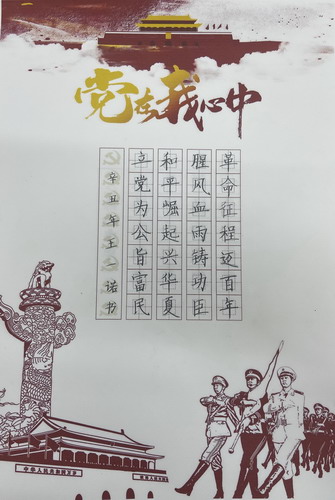 党在我心中
革命征程迈百年
腥风血雨铸功臣
和平崛起兴华夏
立党为公旨富民
辛丑年王一诺书
中华人民共和国万岁